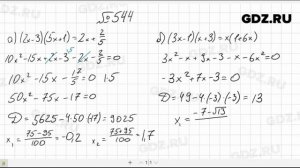 GDZ.RU
№544
а) (2x-3)(5x+1) = 2x + 2/5
10x² - 15x + 2x - 3 - 2x - 2/5 = 0
10x² - 15x - 17/5 = 0 | · 5
50x² - 75x - 17 = 0
D = 5625 - 4·50·(-17) = 9025
x₁ = (75-95)/100 = -0,2 x₂ = (75+95)/100 = 1,7
б) (3x-1)(x+3) = x(1+6x)
3x² - x + 9x - 3 - x - 6x² = 0
-3x² + 7x - 3 = 0
D = 49 - 4·(-3)·(-3) = 13
x₁ = (-7-√13)/
GDZ.RU